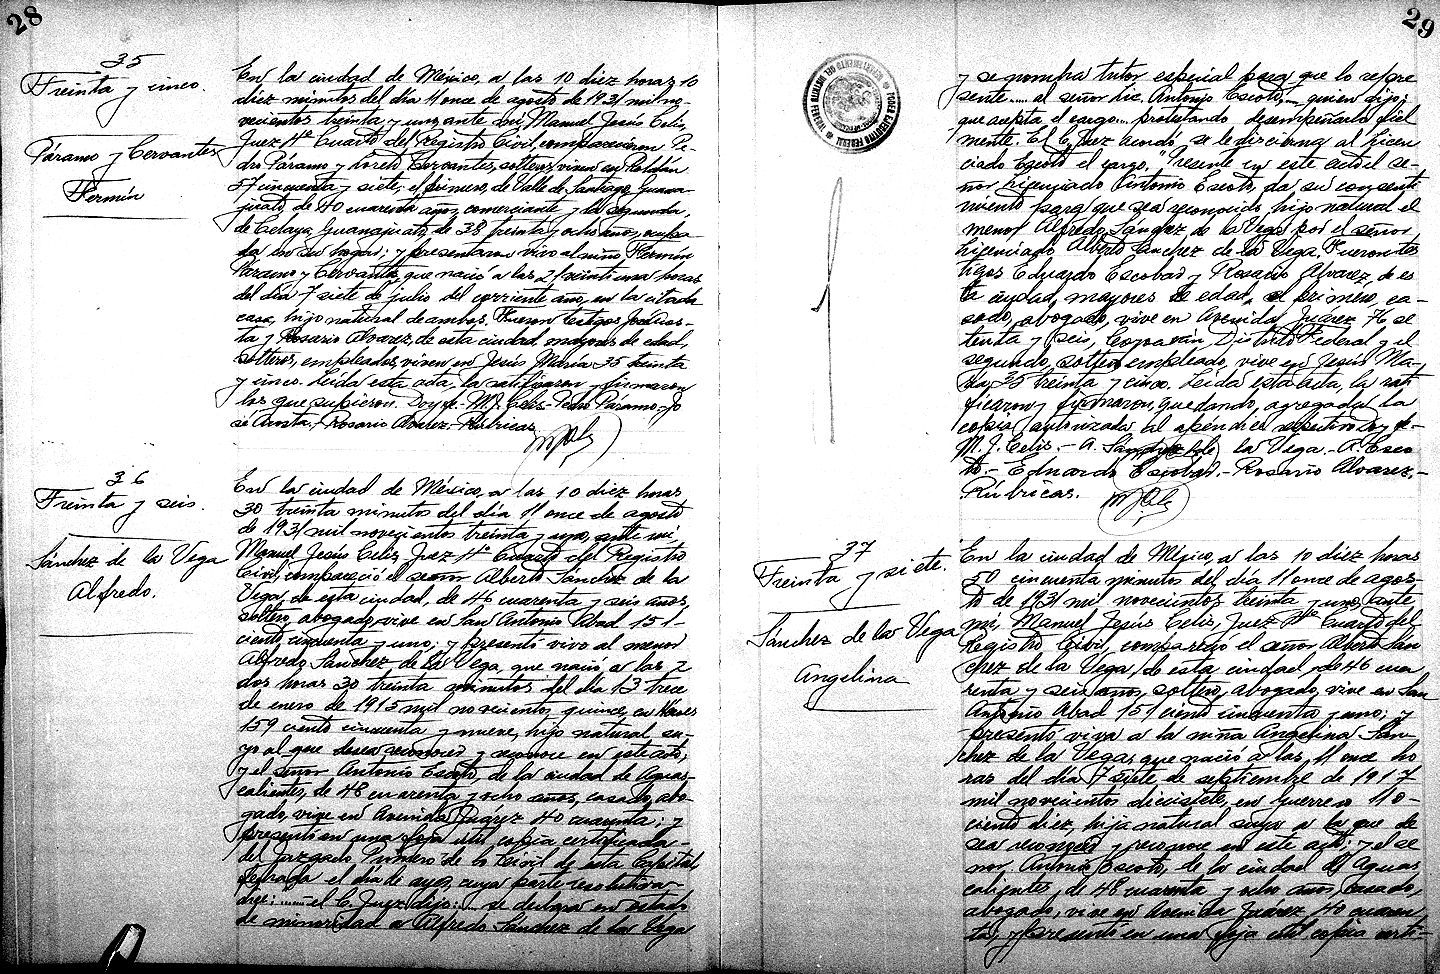 28
35
Treinta y cinco.
Páramo y Cervantes
Fermín
En la ciudad de México, a las 10 diez horas 10
diez minutos del día 11 once de agosto de 1931 mil no-
vecientos treinta y uno, ante mí, Manuel Jesús Celis,
Juez 4º Cuarto del Registro Civil, comparecieron Pe-
dro Páramo y Loreto Cervantes, solteros, viven en Roldán
57 cincuenta y siete; el primero, de Valle de Santiago, Guana-
juato, de 40 cuarenta años, comerciante y la segunda,
de Celaya, Guanajuato, de 38 treinta y ocho años, ocupa-
da en su hogar; y presentaron vivo al niño Fermín
Páramo y Cervantes, que nació a las 21 veintiuna horas
del día 7 siete de julio del corriente año, en la citada
casa, hijo natural de ambos. Fueron testigos José Acos-
ta y Rosario Alvarez, de esta ciudad, mayores de edad,
solteros, empleados, viven en Jesús María 35 treinta
y cinco. Leída esta acta, la ratificaron y firmaron
los que supieron. Doy fe.- M. J. Celis.- Pedro Páramo.- Jo-
sé Acosta.- Rosario Alvarez.- Rúbricas.
36
Treinta y seis.
Sánchez de la Vega
Alfredo.
En la ciudad de México, a las 10 diez horas
30 treinta minutos del día 11 once de agosto
de 1931 mil novecientos treinta y uno, ante mí,
Manuel Jesús Celis, Juez 4to Cuarto del Registro
Civil, compareció el señor Alberto Sánchez de la
Vega, de esta ciudad, de 46 cuarenta y seis años,
soltero, abogado, vive en San Antonio Abad 151-
ciento cincuenta y uno; y presentó vivo al menor
Alfredo Sánchez de la Vega, que nació a las 2
dos horas 30 treinta minutos del día 13 trece
de enero de 1915 mil novecientos quince, en Héroes
159 ciento cincuenta y nueve, hijo natural su-
yo al que desea reconocer y reconoce en este acto;
y el señor Antonio Escoto, de la ciudad de Aguas-
calientes, de 48 cuarenta y ocho años, casado, abo-
gado, vive en Avenida Juárez 40 cuarenta; y
presentó en una foja útil copia certificada-
del Juzgado Primero de lo Civil de esta Capital,
fechada el día de ayer, cuya parte resolutiva-
dice:...... el C. Juez dijo:.... se declara en estado
de minoridad a Alfredo Sánchez de la Vega
29
y se nombra tutor especial para que lo repre-
sente.... al señor Lic. Antonio Escoto,.... quien dijo:
que acepta el cargo.... protestando desempeñarlo fiel
mente. El C. Juez acordó se le discierna al Licen-
ciado Escoto el cargo." Presente en este acto el se-
ñor Licenciado Antonio Escoto, da su consenti
miento para que sea reconocido hijo natural el
menor Alfredo Sánchez de la Vega por el señor
Licenciado Alberto Sánchez de la Vega. Fueron tes
tigos Eduardo Escobar y Rosario Alvarez, de es
ta ciudad, mayores de edad, el primero, ca-
sado, abogado, vive en Avenida Juárez 76 se
tenta y seis, Coyoacán, Distrito Federal y el
segundo, soltero, empleado, vive en Jesús Ma-
ría 35 treinta y cinco. Leída esta acta, la rati
ficaron y firmaron, quedando, agregada la
copia autorizada al apéndice respectivo. Doy fe.-
M. J. Celis.- A. Sánchez de la Vega.- A. Esco
to.- Eduardo Escobar.- Rosario Alvarez.-
Rúbricas.
37
Treinta y siete.
Sánchez de la Vega
Angelina
En la ciudad de México, a las 10 diez horas
50 cincuenta minutos del día 11 once de agos-
to de 1931 mil novecientos treinta y uno, ante
mí, Manuel Jesús Celis, Juez 4to Cuarto del
Registro Civil, compareció el señor Alberto Sán
chez de la Vega, de esta ciudad, de 46 cua
renta y seis años, soltero, abogado, vive en San
Antonio Abad 151 ciento cincuenta y uno; y
presentó viva a la niña Angelina Sán
chez de la Vega, que nació a las 11 once ho
ras del día 7 siete de septiembre de 1917
mil novecientos diecisiete, en Guerrero 110-
ciento diez, hija natural suya a la que de
sea reconocer y reconoce en este acto; y el se
ñor Antonio Escoto, de la ciudad de Aguas
calientes, de 48 cuarenta y ocho años, casado,
abogado, vive en Avenida Juárez 40 cuaren
ta; y presentó en una foja útil copia certi-